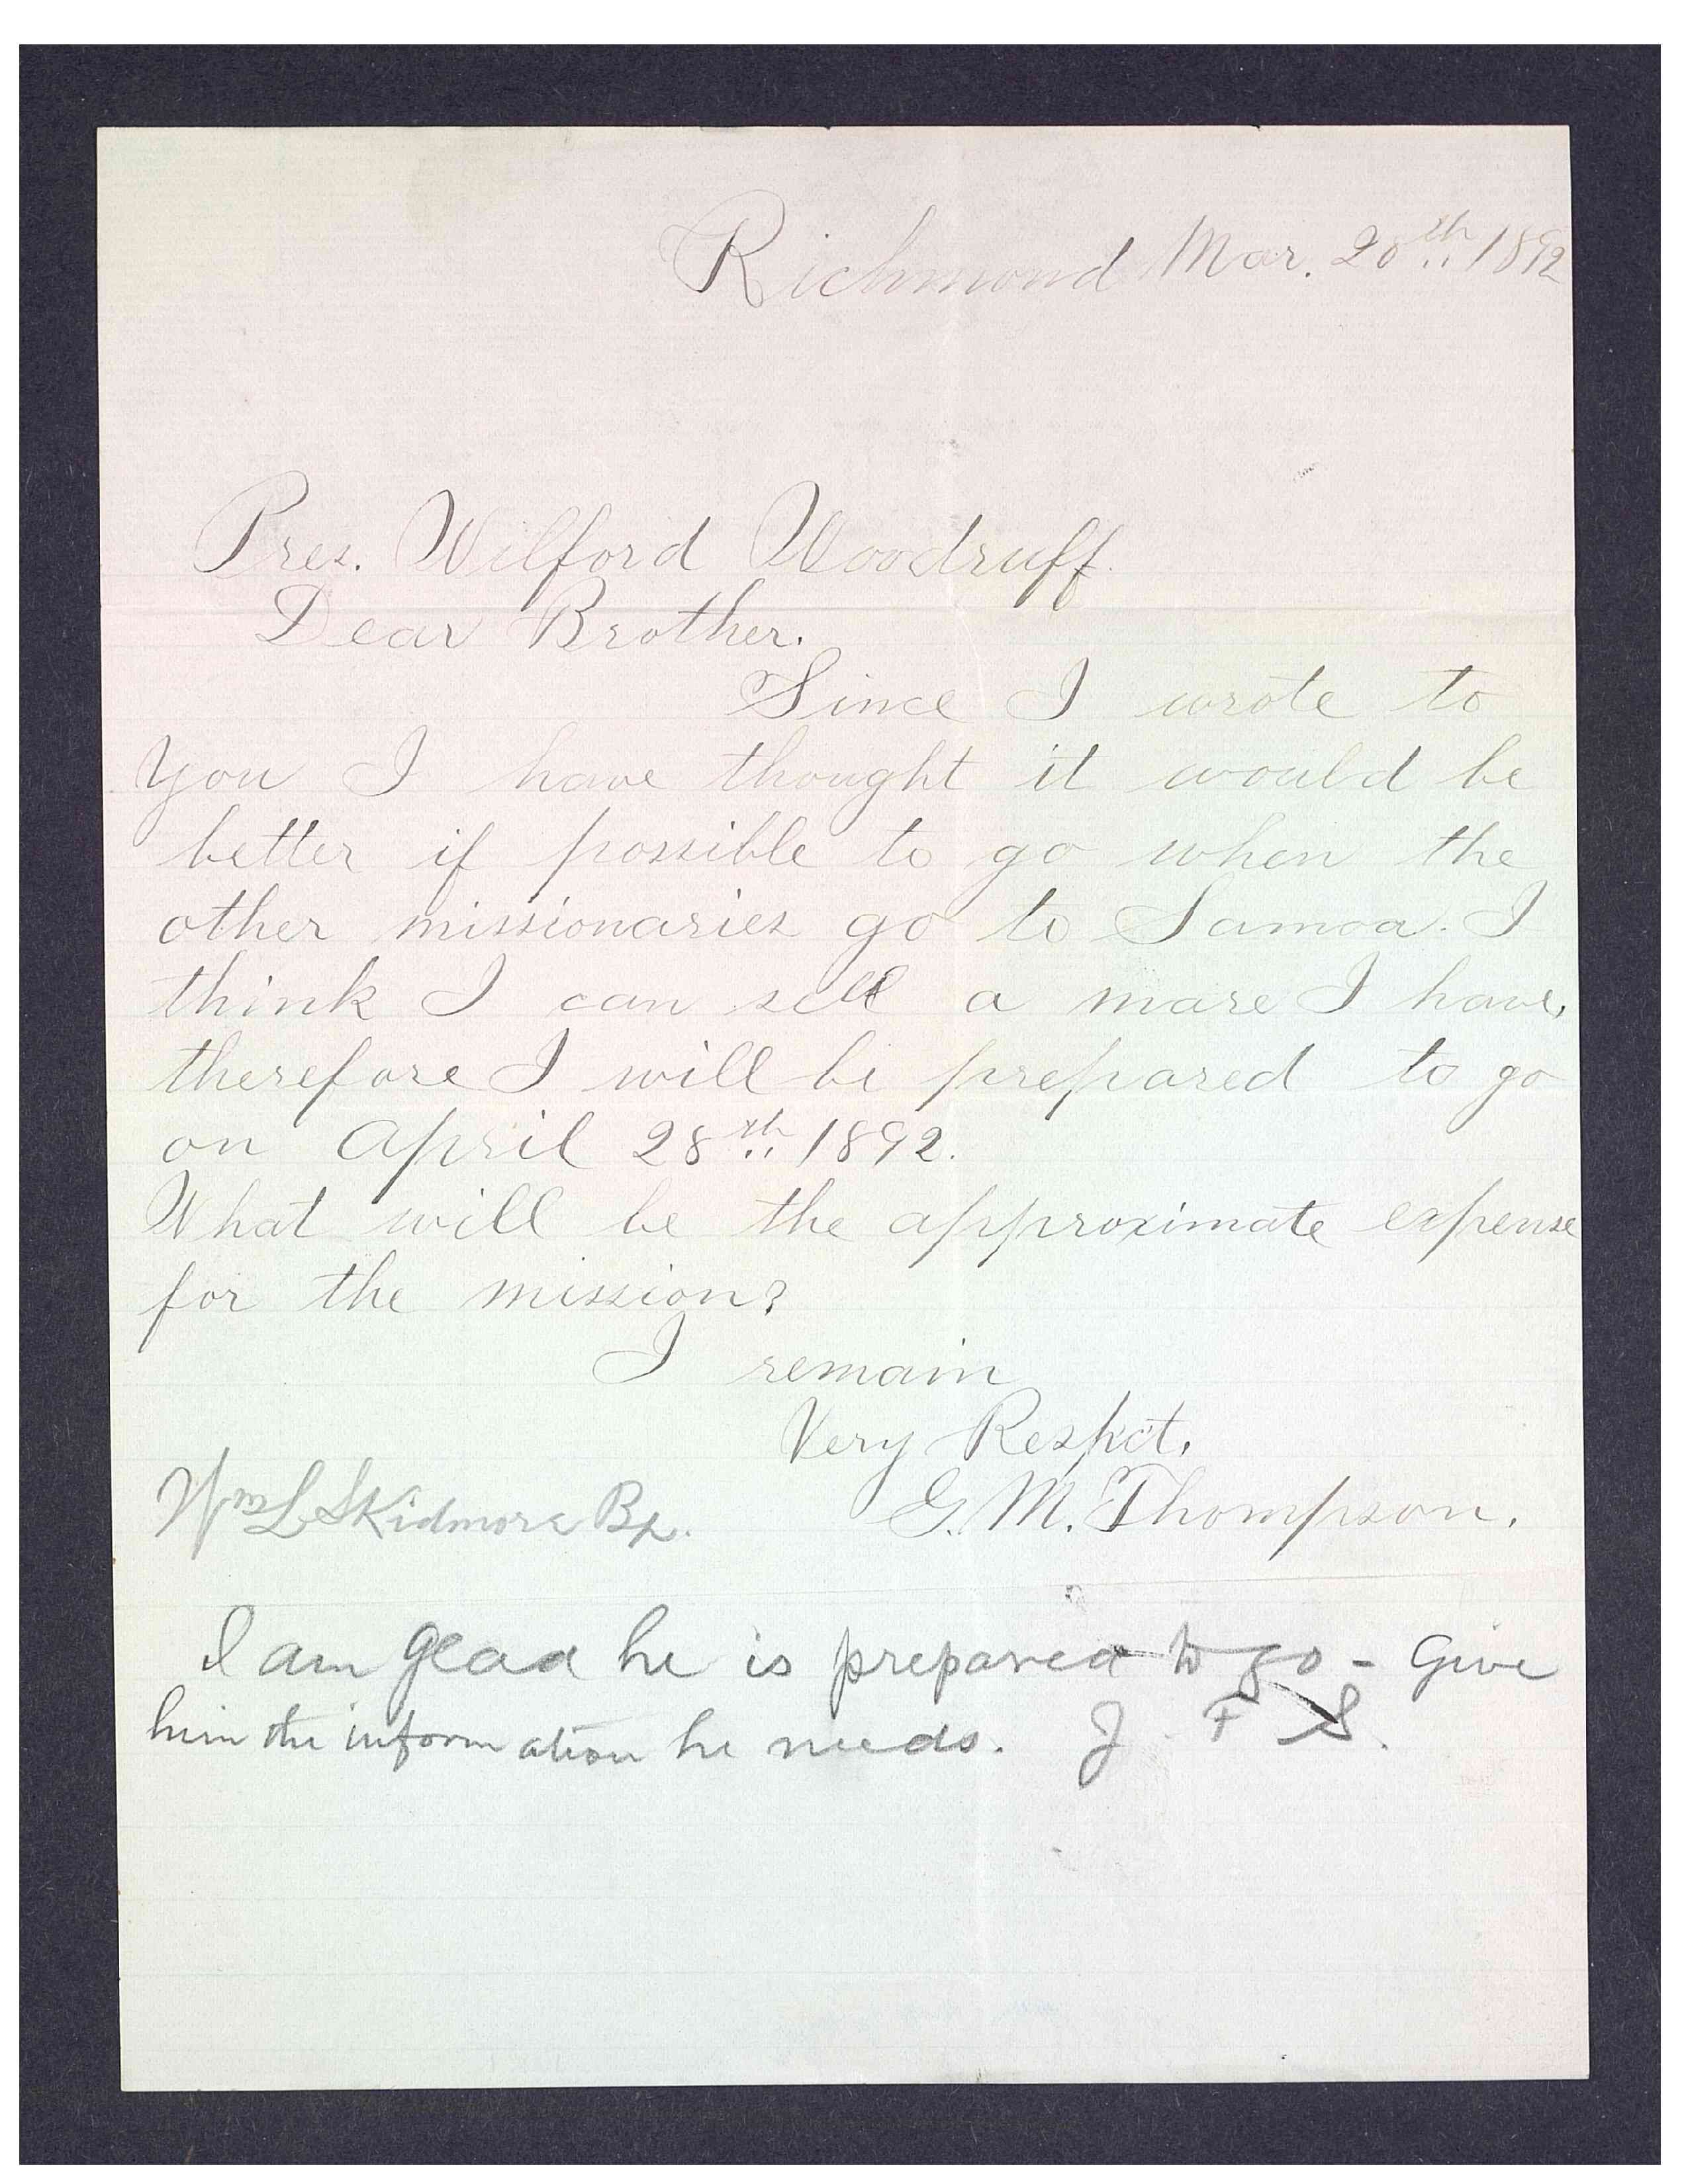 Richmond Mar. 20th 1892
Pres. Wilford Woodruff.
Dear Brother.
Since I wrote to
you I have thought it would be
better if possible to go when the
other missionaries go to Samoa. I
think I can sell a mare I have,
therefore I will be prepared to go
on April 28th 1892.
What will be the approximate expense
for the mission?
I remain
Very Respct.
G. M. Thompson.
Wm L Skidmore Bp.
I am glad he is prepared to go - Give
him the information he needs. J. F. S.